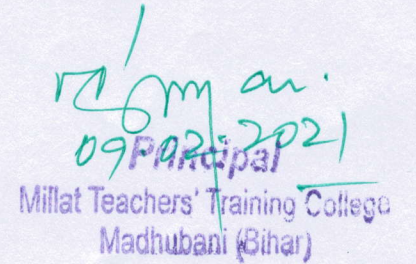 09.02.2021
Principal
Millat Teachers' Training College
Madhubani (Bihar)